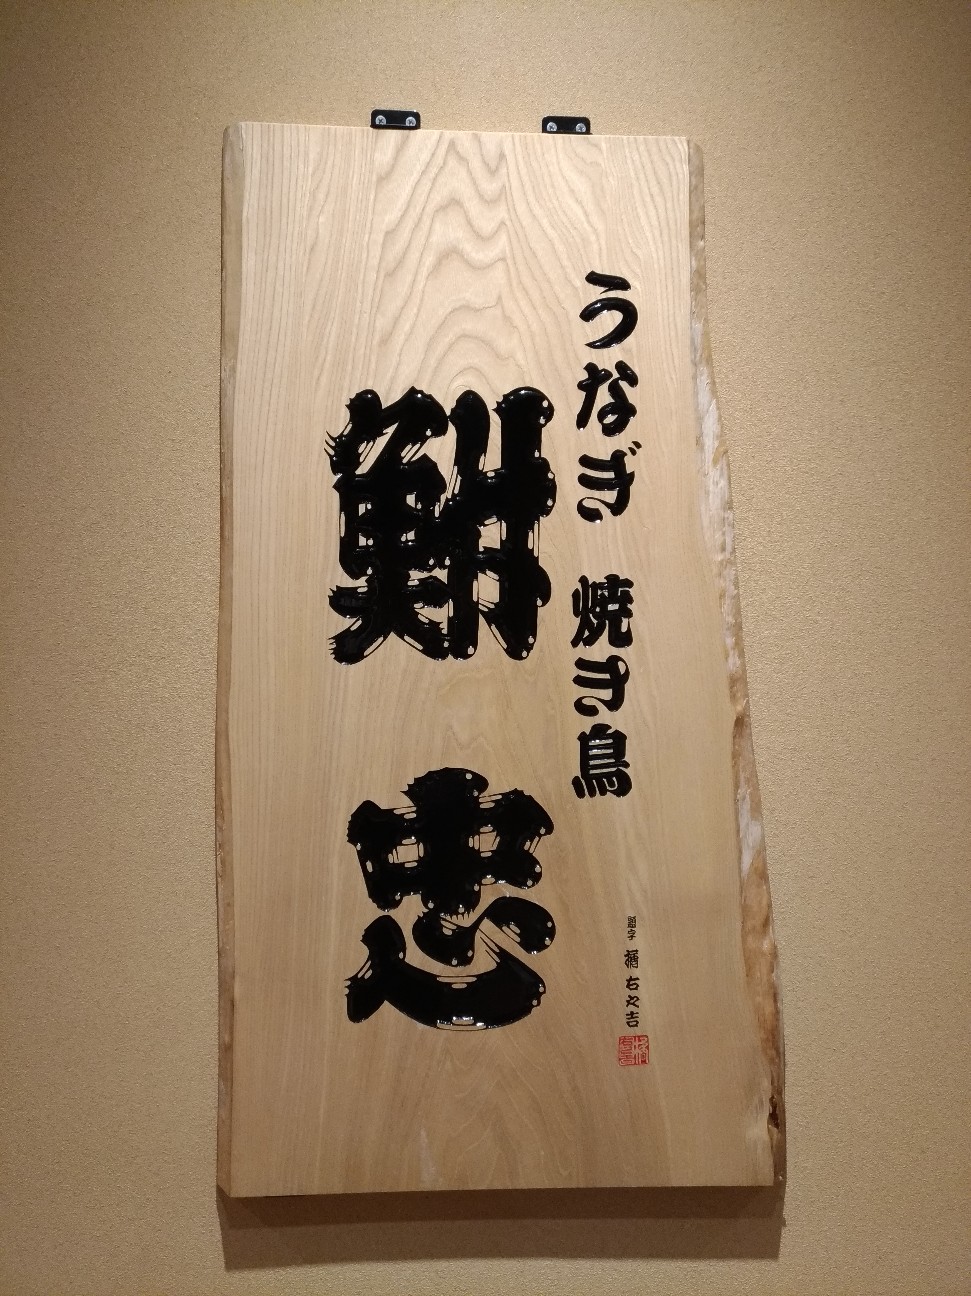 うなぎ 焼き鳥
鮒忠
題字 橘右之吉